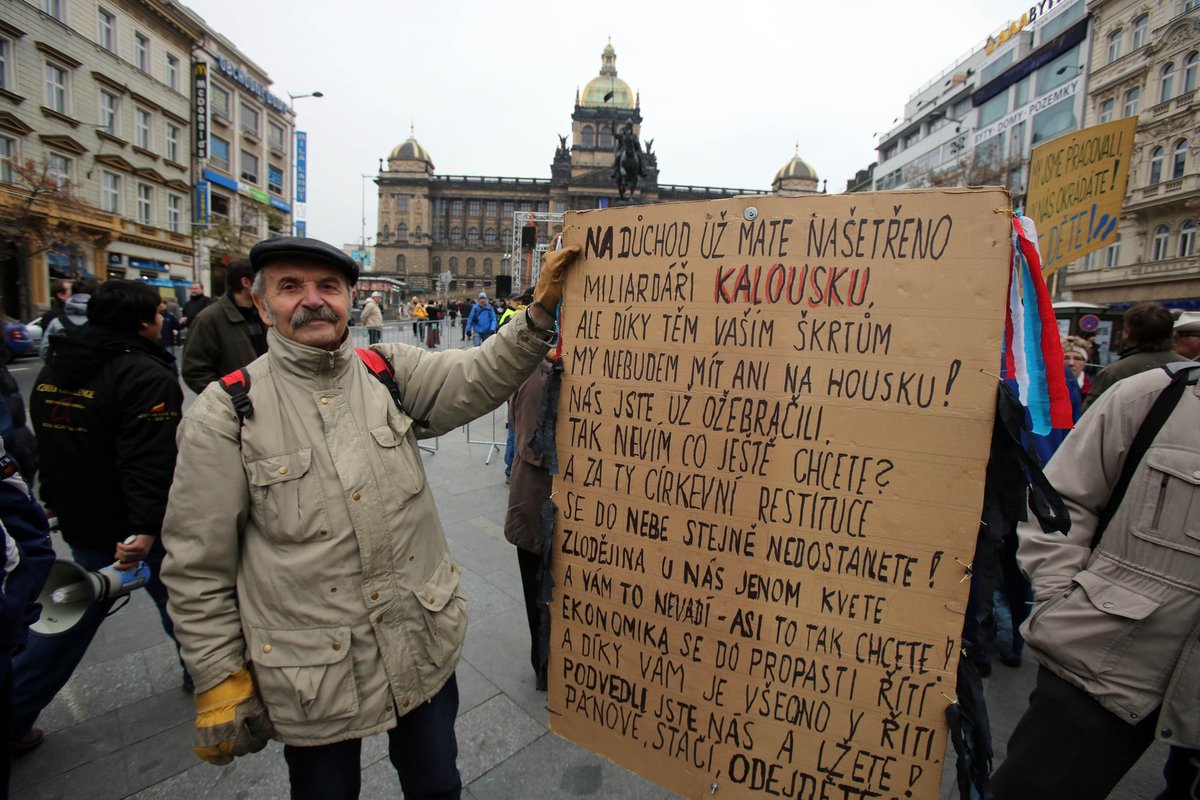 McDONALD'S
BYTY
TYTY - DOMY - POZEMKY
MY JSME PRACOVALI,
NÁS OKRÁDÁTE!
NA DŮCHOD UŽ MÁTE NAŠETŘENO
MILIARDÁŘI KALOUSKU,
ALE DÍKY TĚM VAŠÍM ŠKRTŮM
MY NEBUDEM MÍT ANI NA HOUSKU!
NÁS JSTE UŽ OŽEBRAČILI,
TAK NEVÍM CO JEŠTĚ CHCETE?
A ZA TY CÍRKEVNÍ RESTITUCE
SE DO NEBE STEJNĚ NEDOSTANETE!
ZLODĚJINA U NÁS JENOM KVETE
A VÁM TO NEVADÍ - ASI TO TAK CHCETE!
EKONOMIKA SE DO PROPASTI ŘÍTÍ
A DÍKY VÁM JE VŠECHNO V ŘITI.
PODVEDLI JSTE NÁS A LŽETE!
PÁNOVÉ, STAČÍ, ODEJDĚTE